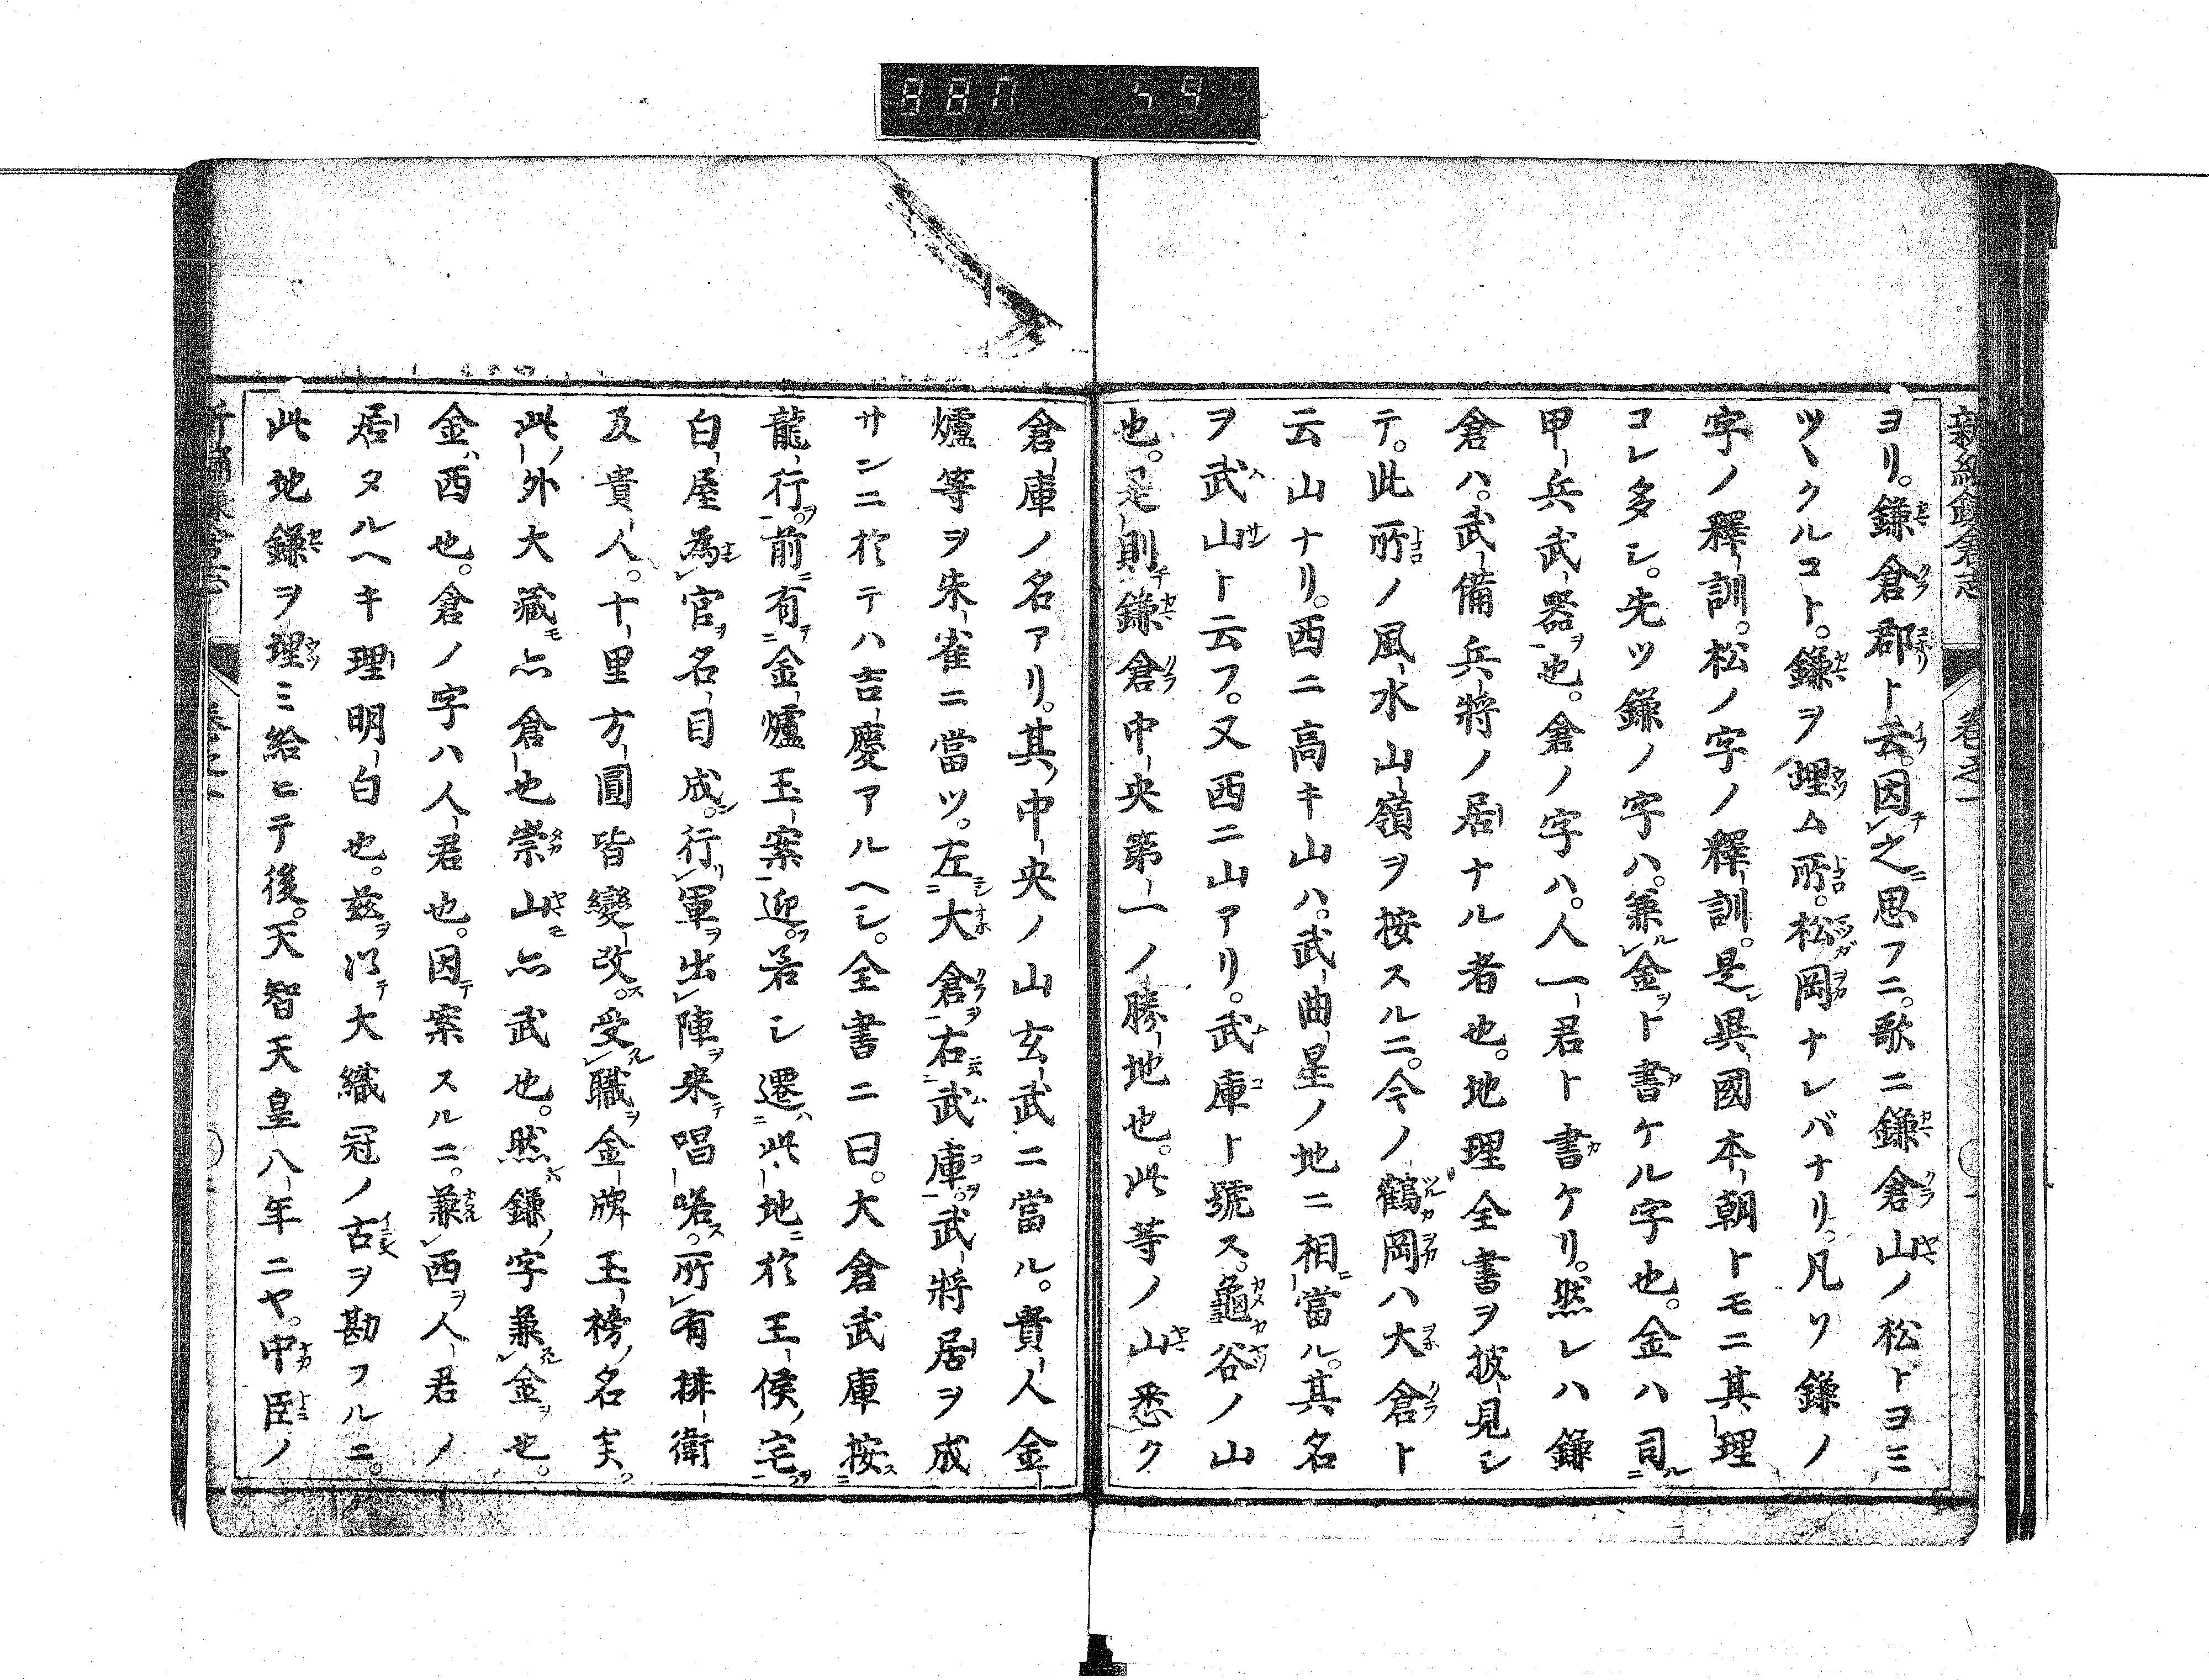 新編鎌倉志 卷之一
ヨリ。鎌倉郡ト云。因之思フニ。歌ニ鎌倉山ノ松トヨミ
ツヽクルコト。鎌ヲ埋ム所。松岡ナレバナリ。凡ソ鎌ノ
字ノ釋訓。松ノ字ノ釋訓。是異國本朝トモニ其理
コレ多シ。先ツ鎌ノ字ハ。兼金ト書ケル字也。金ハ司
甲兵武器也。倉ノ字ハ。人一君ト書ケリ。然レハ鎌
倉ハ。武備兵將ノ居ナル者也。地理全書ヲ披見シ
テ。此所ノ風水山嶺ヲ按スルニ。今ノ鶴岡ハ大倉ト
云山ナリ。西ニ高キ山ハ。武曲星ノ地ニ相當ル。其名
ヲ武山ト云フ。又西ニ山アリ。武庫ト號ス。龜谷ノ山
也。是則鎌倉中央第一ノ勝地也。此等ノ山悉ク
倉庫ノ名アリ。其中央ノ山玄武ニ當ル。貴人金
爐等ヲ朱雀ニ當ツ。左大倉右武庫。武將居ヲ成
サンニ於テハ吉慶アルヘシ。全書ニ曰。大倉武庫按
龍行。前有金爐玉案迎。若シ遷此地於王侯宅
白屋為官名目成。行軍出陣来唱喏。所有排衛
及貴人。十里方圓皆變改。受職金牌玉榜名矣
此外大藏モ亦倉也崇山亦武也。然鎌字兼金也。
金ハ西也。倉ノ字ハ人君也。因テ案スルニ。兼西人君ノ
居タルヘキ理明白也。茲ヲ以テ大織冠ノ古ヲ勘フルニ。
此地鎌ヲ埋ミ給ヒテ後。天智天皇八年ニヤ。中臣ノ